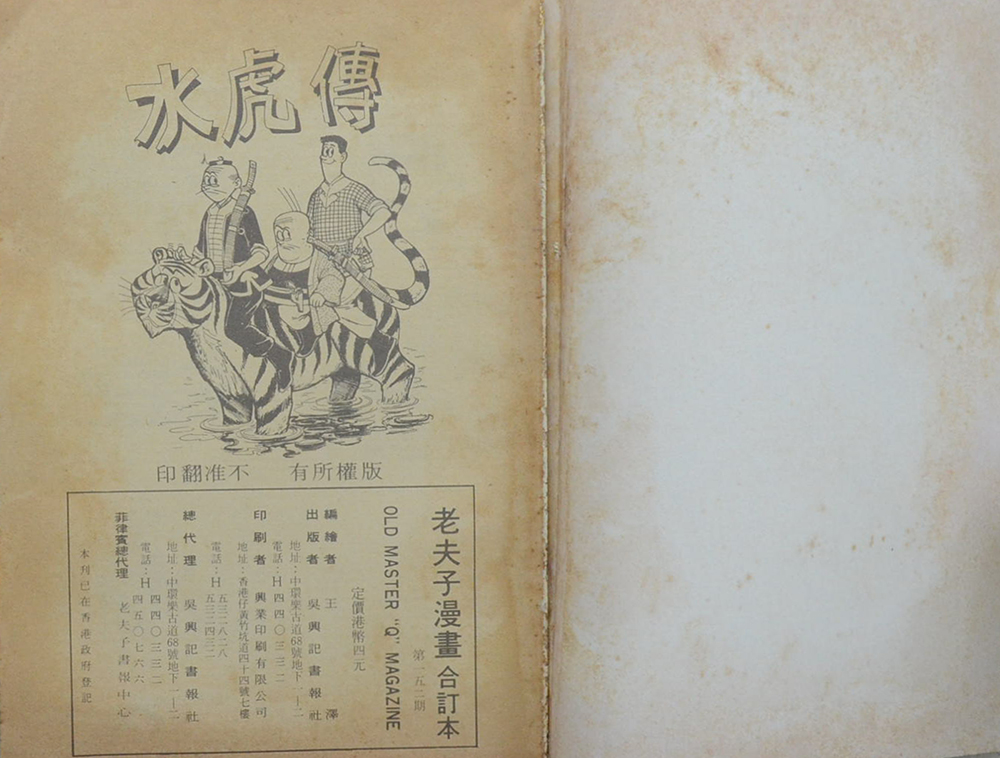 水虎傳
版權所有 不准翻印
老夫子漫畫合訂本
第一五二期
OLD MASTER "Q" MAGAZINE
定價港幣四元
編繪者 王澤
出版者 吳興記書報社
地址：中環樂古道68號地下一—二
電話：H四四〇三三二
印刷者 興業印刷有限公司
地址：香港仔黃竹坑道四十四號七樓
電話：H五三二八二八
五三二四三二
總代理 吳興記書報社
地址：中環樂古道68號地下一—二
電話：H四四〇三三二
四五〇七六六
菲律賓總代理 老夫子書報中心
本刊已在香港政府登記